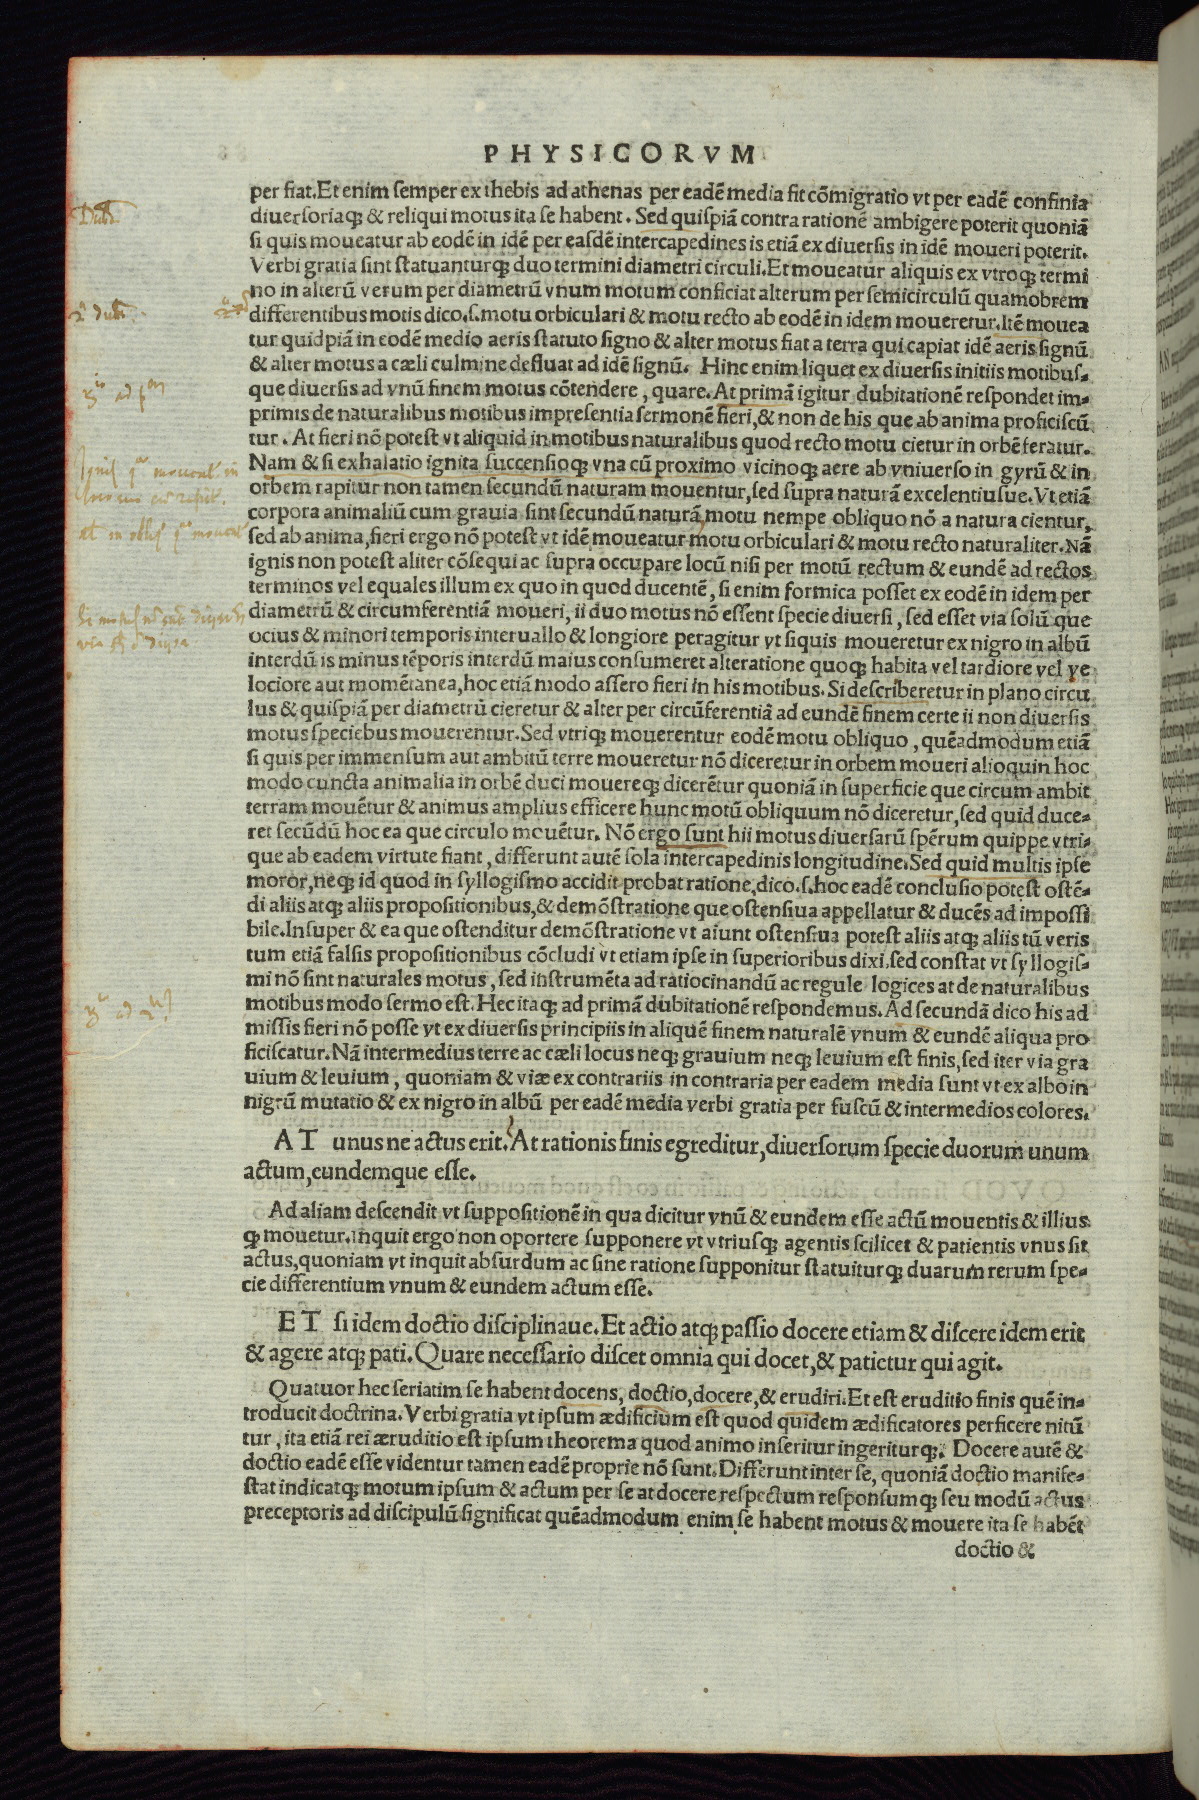 PHYSICORVM
per fiat. Et enim semper ex thebis ad athenas per eadē media fit cōmigratio vt per eadē confinia
diuersoriaq; & reliqui motus ita se habent. Sed quispiā contra rationē ambigere poterit quoniā
si quis moueatur ab eodē in idē per easdē intercapedines is etiā ex diuersis in idē moueri poterit.
Verbi gratia sint statuanturq; duo termini diametri circuli. Et moueatur aliquis ex vtroq; termi
no in alterū verum per diametrū vnum motum conficiat alterum per semicirculū quamobrem
differentibus motis dico .s. motu orbiculari & motu recto ab eodē in idem moueretur. Itē mouea
tur quidpiā in eodē medio aeris statuto signo & alter motus fiat a terra qui capiat idē aeris signū
& alter motus a cæli culmine defluat ad idē signū. Hinc enim liquet ex diuersis initiis motibus-
que diuersis ad vnū finem motus cōtendere, quare. At primā igitur dubitationē respondet im-
primis de naturalibus motibus impresentia sermonē fieri, & non de his que ab anima proficiscū
tur. At fieri nō potest vt aliquid in motibus naturalibus quod recto motu cietur in orbē feratur.
Nam & si exhalatio ignita succensioq; vna cū proximo vicinoq; aere ab vniuerso in gyrū & in
orbem rapitur non tamen secundū naturam mouentur, sed supra naturā excelentiusue. Vt etiā
corpora animaliū cum grauia sint secundū naturā, motu nempe obliquo nō a natura cientur,
sed ab anima, fieri ergo nō potest vt idē moueatur motu orbiculari & motu recto naturaliter. Nā
ignis non potest aliter cōsequi ac supra occupare locū nisi per motū rectum & eundē ad rectos
terminos vel equales illum ex quo in quod ducentē, si enim formica posset ex eodē in idem per
diametrū & circumferentiā moueri, ii duo motus nō essent specie diuersi, sed esset via solū que
ocius & minori temporis interuallo & longiore peragitur vt siquis moueretur ex nigro in albū
interdū is minus tēporis interdū maius consumeret alteratione quoq; habita vel tardiore vel ve
lociore aut momētanea, hoc etiā modo assero fieri in his motibus. Si describeretur in plano circu
lus & quispiā per diametrū cieretur & alter per circūferentiā ad eundē finem certe ii non diuersis
motus speciebus mouerentur. Sed vtriq; mouerentur eodē motu obliquo, quēadmodum etiā
si quis per immensum aut ambitū terre moueretur nō diceretur in orbem moueri alioquin hoc
modo cuncta animalia in orbē duci mouereq; dicerētur quoniā in superficie que circum ambit
terram mouētur & animus amplius efficere hunc motū obliquum nō diceretur, sed quid duce-
ret secūdū hoc ea que circulo mouētur. Nō ergo sunt hii motus diuersarū spērum quippe vtri-
que ab eadem virtute fiant, differunt autē sola intercapedinis longitudine. Sed quid multis ipse
moror, neq; id quod in syllogismo accidit probat ratione, dico .s. hoc eadē conclusio potest ostē-
di aliis atq; aliis propositionibus, & demōstratione que ostensiua appellatur & ducēs ad impossi
bile. Insuper & ea que ostenditur demōstratione vt aiunt ostensiua potest aliis atq; aliis tū veris
tum etiā falsis propositionibus cōcludi vt etiam ipse in superioribus dixi. sed constat vt syllogis-
mi nō sint naturales motus, sed instrumēta ad ratiocinandū ac regule logices at de naturalibus
motibus modo sermo est. Hec itaq; ad primā dubitationē respondemus. Ad secundā dico his ad
missis fieri nō posse vt ex diuersis principiis in aliquē finem naturalē vnum & eundē aliqua pro
ficiscatur. Nā intermedius terre ac cæli locus neq; grauium neq; leuium est finis, sed iter via gra
uium & leuium, quoniam & viæ ex contrariis in contraria per eadem media sunt vt ex albo in
nigrū mutatio & ex nigro in albū per eadē media verbi gratia per fuscū & intermedios colores.
AT unus ne actus erit. At rationis finis egreditur, diuersorum specie duorum unum
actum, eundemque esse.
Ad aliam descendit vt suppositionē in qua dicitur vnū & eundem esse actū mouentis & illius
q; mouetur. inquit ergo non oportere supponere vt vtriusq; agentis scilicet & patientis vnus sit
actus, quoniam vt inquit absurdum ac sine ratione supponitur statuiturq; duarum rerum spe-
cie differentium vnum & eundem actum esse.
ET si idem doctio disciplinaue. Et actio atq; passio docere etiam & discere idem erit
& agere atq; pati. Quare necessario discet omnia qui docet, & patietur qui agit.
Quatuor hec seriatim se habent docens, doctio, docere, & erudiri. Et est eruditio finis quē in-
troducit doctrina. Verbi gratia vt ipsum ædificium est quod quidem ædificatores perficere nitū
tur, ita etiā rei æruditio est ipsum theorema quod animo inseritur ingeriturq;. Docere autē &
doctio eadē esse videntur tamen eadē proprie nō sunt. Differunt inter se, quoniā doctio manife-
stat indicatq; motum ipsum & actum per se at docere respectum responsumq; seu modū actus
preceptoris ad discipulū significat quēadmodum enim se habent motus & mouere ita se habēt
doctio &